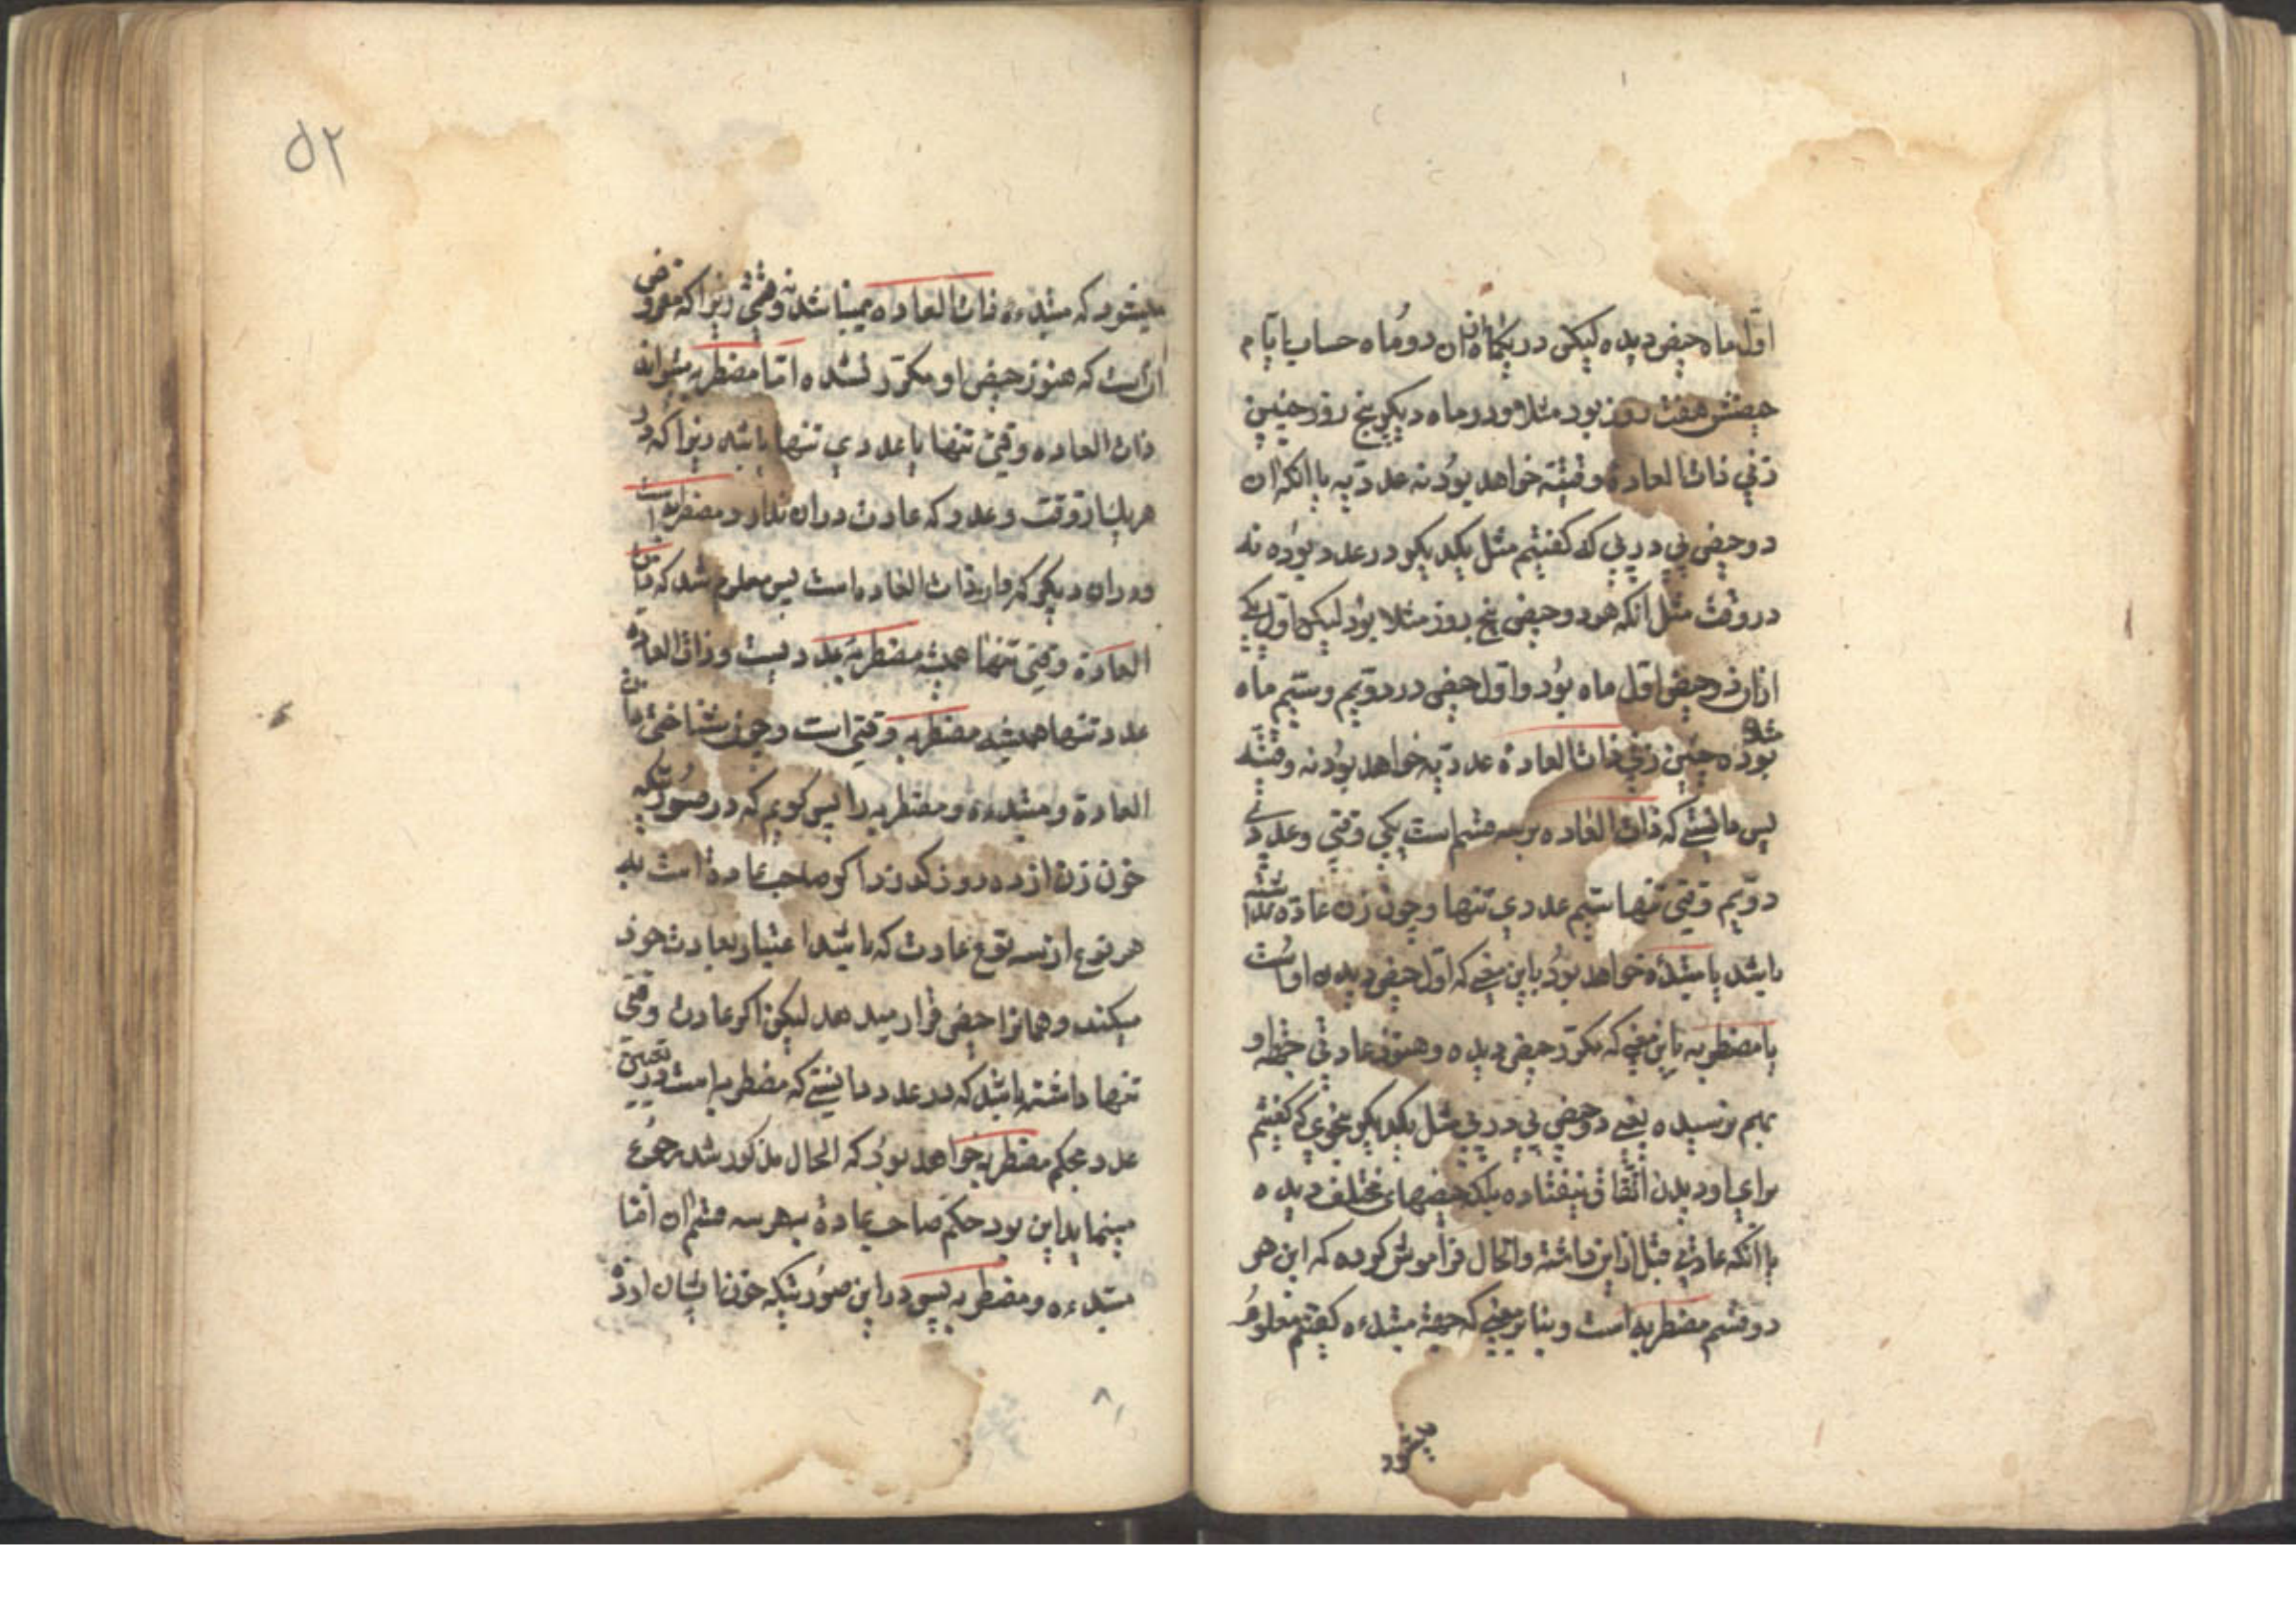 اول ماه حیض دیده لیکن در یکماه ازان دو ماه حساب ایام
حیضش هفت روز بود مثلا و در ماه دیگر پنج روز چنین
زنی ذات العادة وقتیه خواهد بود نه عددیه یا انکه ان
دو حیض پی در پی که کفتیم مثل یکدیکر در عدد بوده نه
در وقت مثل انکه هر دو حیض پنج روز مثلا بود لیکن اول یکی
ازان دو حیض اول ماه بود و اول حیض در دویم و سیم ماه
شده
بوده چنین زنی ذات العادة عددیه خواهد بود نه وقتیه
پس دانستی که ذات العاده بر سه قسم است یکی وقتی و عددی
دویم وقتی تنها سیم عددی تنها و چون زن عاده نداشته
باشد یا مبتدأه خواهد بود باین معنی که اول حیض دیدن اوست
یا مضطربه باین معنی که مکرر حیض دیده و هنوز عادتی او
بهم نرسیده یعنی دو حیض پی در پی مثل یکدیکر بنحوی که کفتیم
برای او دیدن اتفاق نیفتاده بلکه حیضهای مختلف دیده
یا انکه عادتی قبل ازاین داشته و الحال فراموش کرده که این هر
دو قسم مضطربه است و بنابر معنی که جهة مبتدءه کفتیم معلوم
میشود
میشود که مبتدءه ذات العاده نمیباشد نه وقتی زیرا که مفروض
ان است که هنوز حیض او مکرر نشده اما مضطربه میتواند
ذات العاده وقتی تنها یا عددی تنها باشد زیرا که در
هر یک از وقت و عدد که عادت دران ندارد مضطربه است
و دران دیکر که دارد ذات العاده است پس معلوم شد که ذات
العادة وقتی تنها همیشه مضطربه عدد یست و ذات العاده
عدد تنها همیشه مضطربه وقتی است و چون شناختی ذات
العادة و مبتدءه و مضطربه را پس کویم که در صورتیکه
خون زن از ده روز کذرد اکر صاحب عادة است به
هر نوع از سه نوع عادت که باشد اعتبار بعادت خود
میکند و همانرا حیض قرار میدهد لیکن اکر عادت وقتی
تنها داشته باشد که در عدد دانستی که مضطربه است در تعیین
عدد بحکم مضطربه خواهد بود که الحال مذکور شد رجوع
مینماید این بود حکم صاحب عادة بهر سه قسم ان اما
مبتدءه و مضطربه پس در این صورتیکه خون ایشان از
۵۲